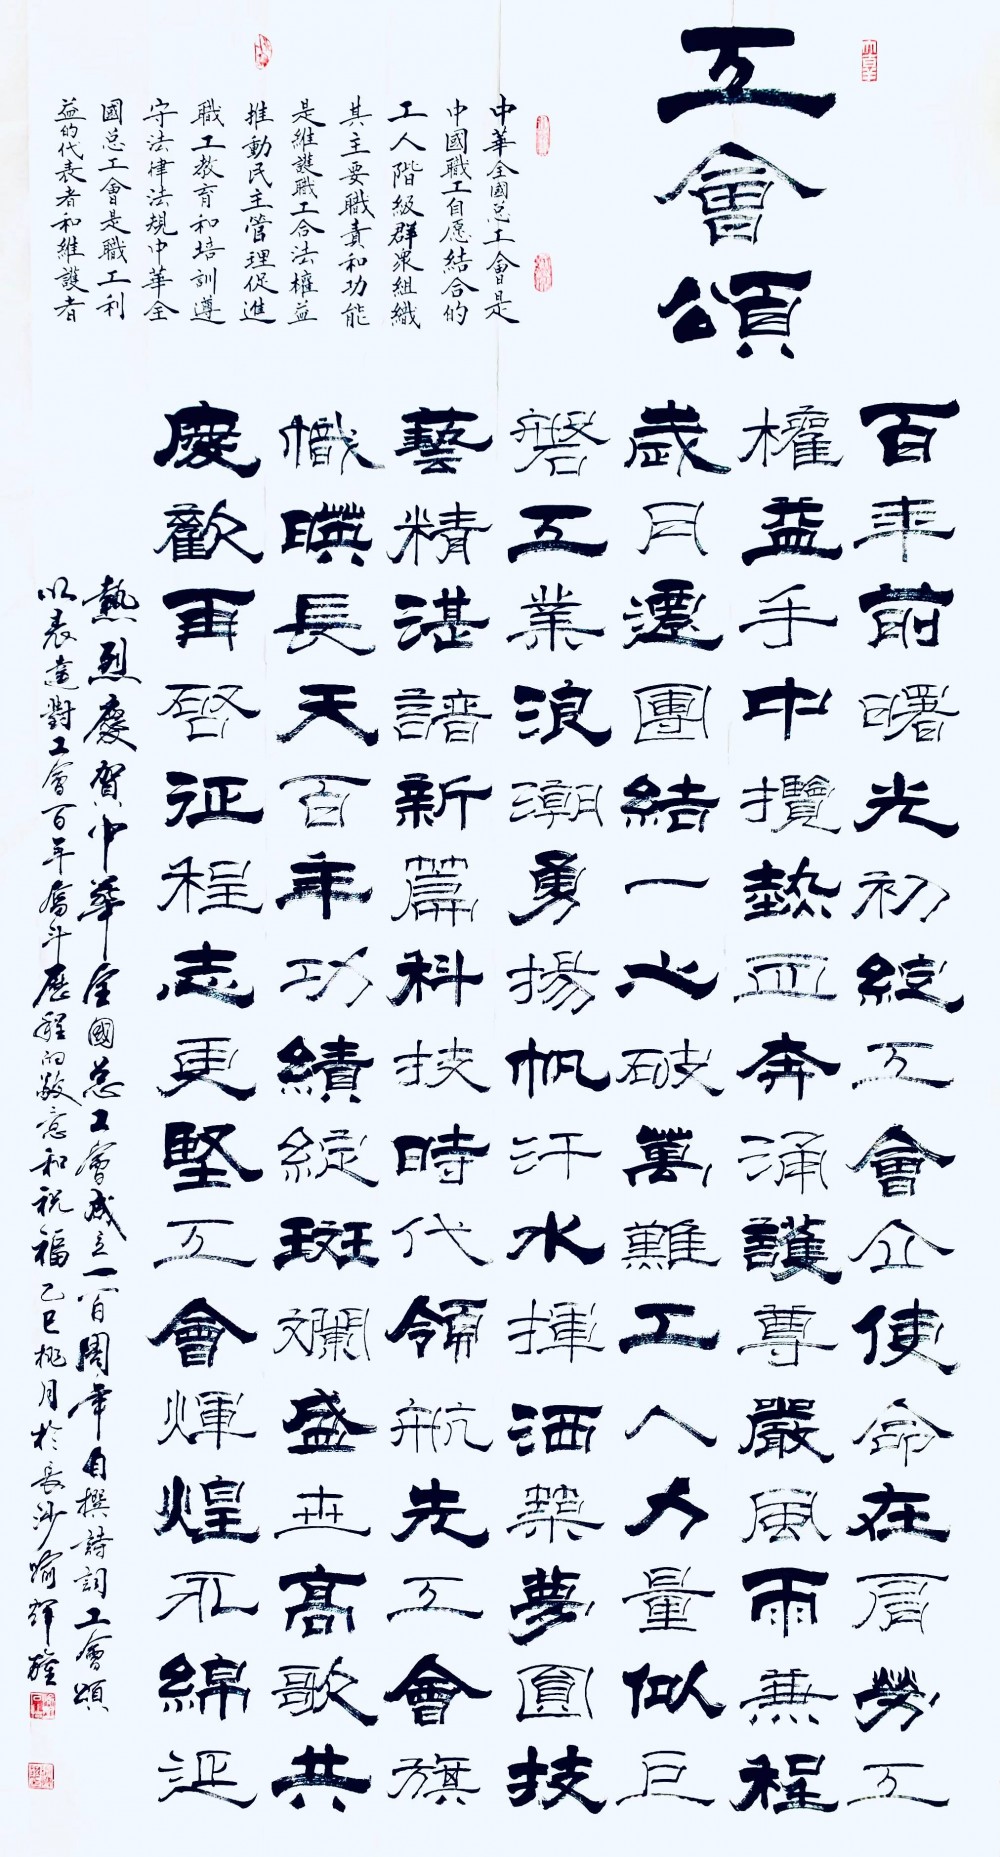 工會頌
百年前曙光初綻工會企使命在肩勞工
權益手中攬熱血奔涌護尊嚴風雨兼程
歲月遷團結一心破萬難工人力量似巨
磐工業浪潮勇揚帆汗水揮洒築夢圓技
藝精湛譜新篇科技時代領航先工會旗
幟暎長天百年功績綻斑斕盛世高歌共
慶歡再啓征程志更堅工會輝煌永綿延
中華全國总工會是
中國職工自愿結合的
工人階級群衆組織
其主要職責和功能
是維護職工合法權益
推動民主管理促進
職工教育和培訓遵
守法律法規中華全
國总工會是職工利
益的代表者和維護者
熱烈慶賀中華全國总工會成立一百周年自撰詩詞工會頌
以表達對工會百年奮斗歷程的敬意和祝福乙巳桃月於長沙喻輝